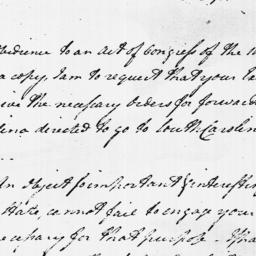 bedience to an act of Congress of the
a copy. I am to request that your
ive the necessary orders for forward
lina directed to go to South Carolin
An object so important & interestin
State, cannot fail to engage your
ecessary for that purpose